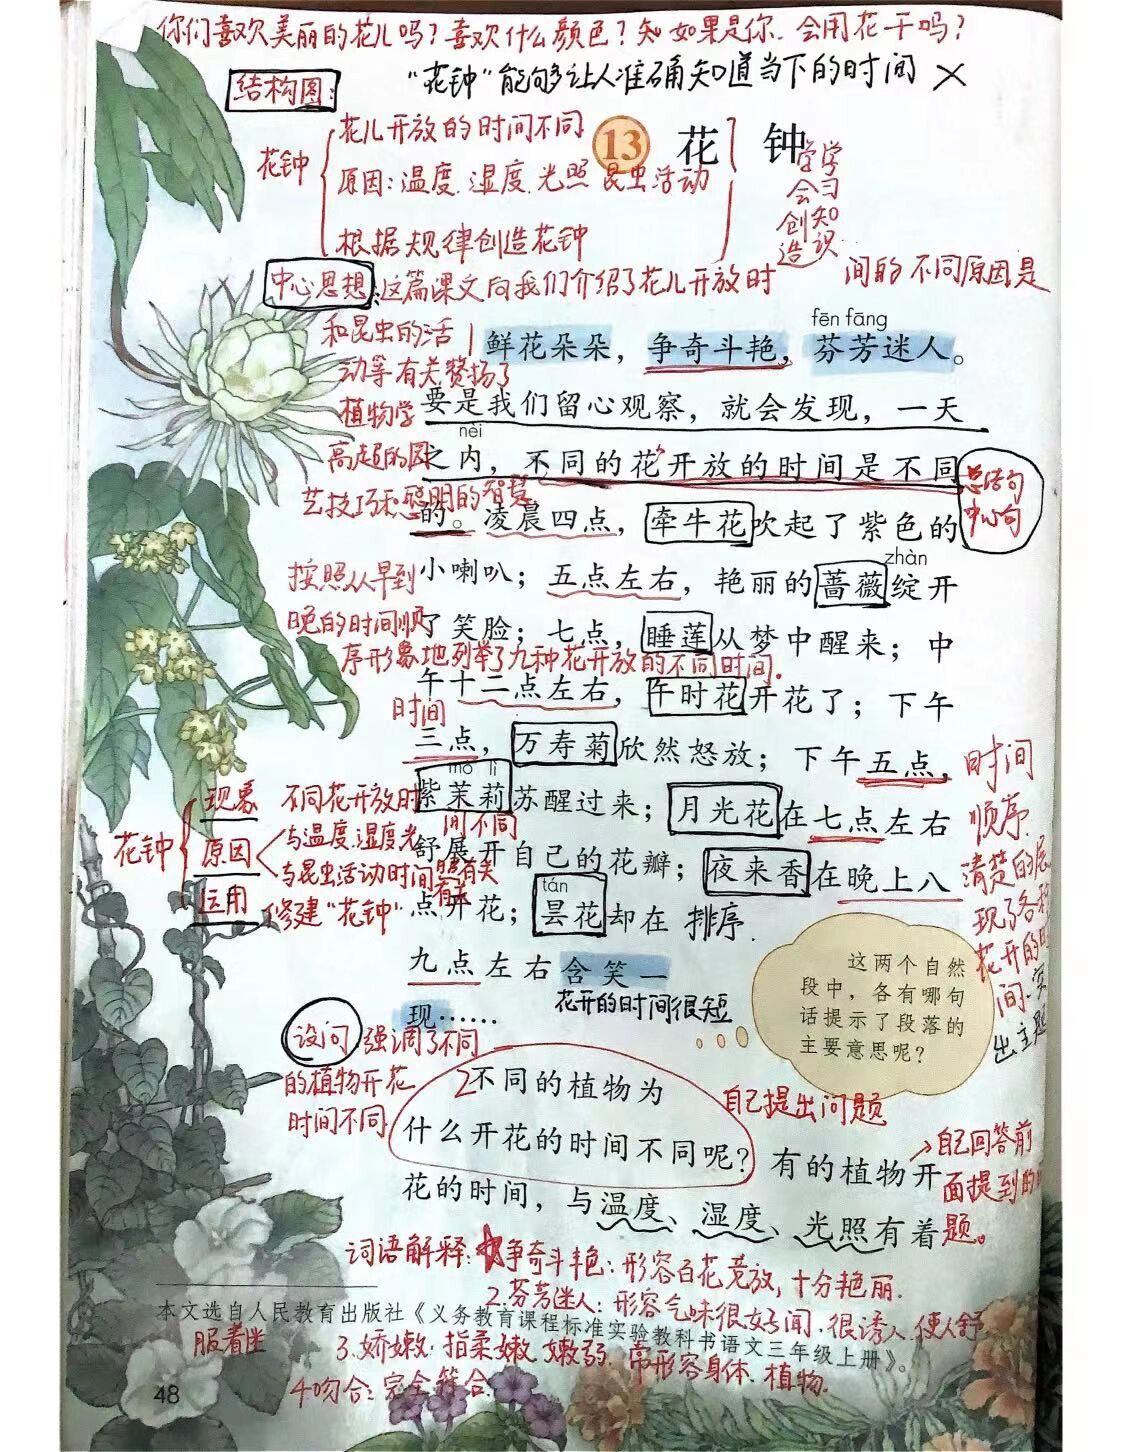 你们喜欢美丽的花儿吗？喜欢什么颜色？如果是你，会用花干吗？
"花钟"能够让人准确知道当下的时间 ×
结构图：
花钟
花儿开放的时间不同
原因：温度、湿度、光照 昆虫活动
根据规律创造花钟
13 花 钟
学会创造
学习知识
中心思想：这篇课文向我们介绍了花儿开放时
间的不同原因是
和昆虫的活
动等有关赞扬了
植物学
高超的园
艺技巧和聪明的智慧
fēn fāng
1 鲜花朵朵，争奇斗艳，芬芳迷人。
要是我们留心观察，就会发现，一天
nèi
之内，不同的花开放的时间是不同
的。凌晨四点，牵牛花吹起了紫色的
总结句
中心句
zhàn
小喇叭；五点左右，艳丽的蔷薇绽开
了笑脸；七点，睡莲从梦中醒来；中
按照从早到
晚的时间顺
序形象地列举了九种花开放的不同时间.
午十二点左右，午时花开花了；下午
时间
三点，万寿菊欣然怒放；下午五点，
mò lì
紫茉莉苏醒过来；月光花在七点左右
舒展开自己的花瓣；夜来香在晚上八
tán
点开花；昙花却在 排序.
九点左右含笑一
现……
花开的时间很短
时间
顺序
清楚的展
现了各种
花开的时
间.突
出主题
花钟
现象 不同花开放时
间不同
原因 与温度.湿度.光
照有关
与昆虫活动时间
有关
运用 修建"花钟"
这两个自然
段中，各有哪句
话提示了段落的
主要意思呢？
设问 强调了不同
的植物开花
时间不同
2 不同的植物为
什么开花的时间不同呢？有的植物开
花的时间，与温度、湿度、光照有着
自己提出问题
自己回答前
面提到的问
题。
词语解释：1.争奇斗艳：形容百花竞放，十分艳丽.
2.芬芳迷人：形容气味很好闻.很诱人.使人舒
服着迷
3.娇嫩：指柔嫩 嫩弱.常形容身体.植物.
4.吻合：完全符合.
本文选自人民教育出版社《义务教育课程标准实验教科书语文三年级上册》。
48